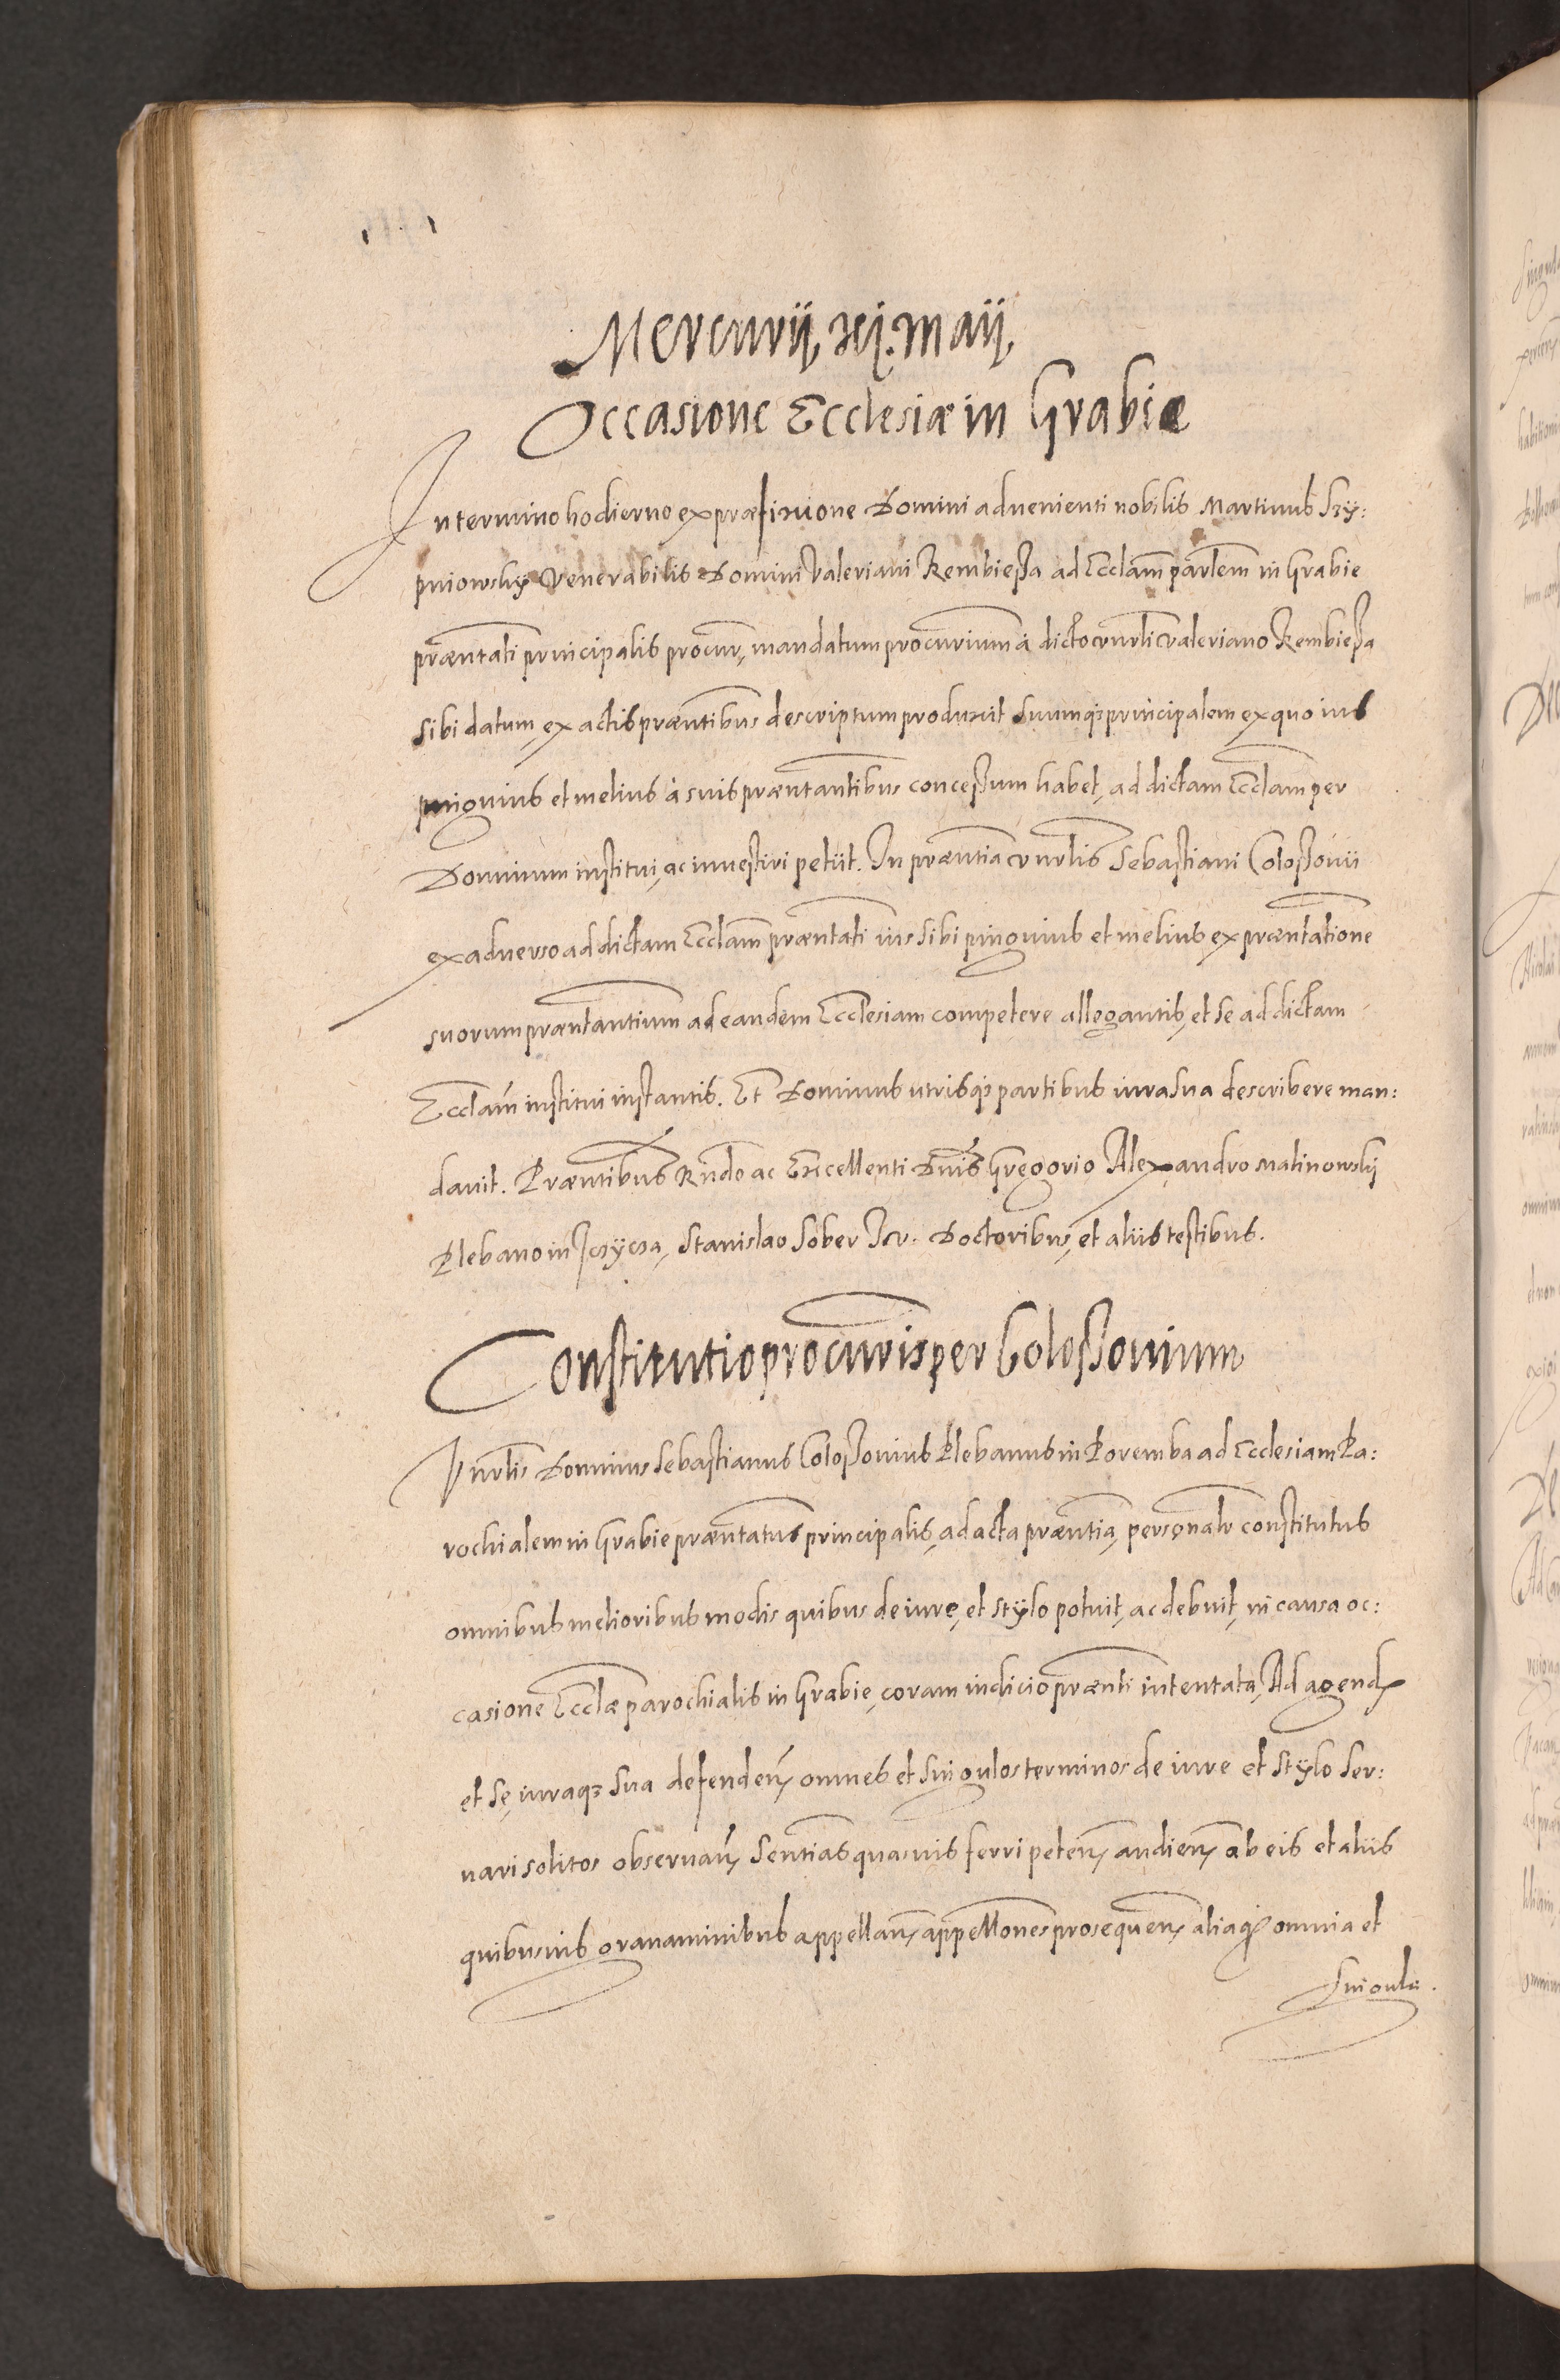 Mercurij, xi. Maij,
Occasione Ecclesiæ in Grabie
In termino hodierno ex præfixione Domini advenienti nobilis Martinus Szÿ:
pniowskÿ Venerabilis Domini Valeriani Rembiessa ad Ecclam parlem in Grabie
præntati principalis procur, mandatum procurium à dicto vnrli Valeriano Rembiessa
sibi datum, ex actis præntibus descriptum produxit suumq principalem ex quo ius
pinguius et melius à suis præntantibus concessum habet, ad dictam Ecclam per
Dominum institui, ac inuestiri petiit. In præntia vnrlis Sebastiani Colossouii
ex aduerso ad dictam Ecclam præntati ius sibi pinguius et melius ex præntatione
suorum præntantium ad eandem Ecclesiam competere allegantis, et se ad dictam
Ecclam institui instantis. Et Dominus utrisq partibus iura sua describere man:
dauit. Præntibus Rndo ac Excellenti Dnis Gregorio Alexandro Malinowskÿ
Plebano in, Stanislao Sober Jur. Doctoribus, et aliis testibus.
Constitutio procuris per Colossouium
Vnrlis Dominus Sebastianus Colossouius Plebanus in Poremba ad Ecclesiam Pa:
rochialem in Grabie præntatus principalis, ad acta præntia, personalr constitutus
omnibus melioribus modis quibus de iure, et stÿlo potuit, ac debuit, in causa oc:
casione Ecclæ parochialis in Grabie, coram iudicio prænti intentata, Ad agend
et se, iuraq sua defenden omnes et singulos terminos de iure et stÿlo ser:
uari solitos obseruan, Sentias quasuis ferri peten, audien, ab eis et aliis
quibusuis grauaminibus appellan, appellones prosequen, aliaq omnia et
singula.